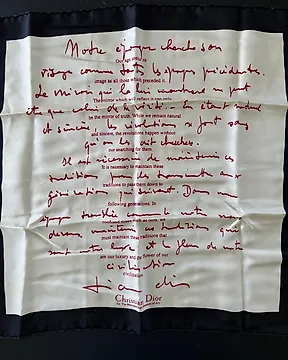 Notre époque cherche son
Our age seeks its
visage comme toutes les époques précédentes.
image as all those which preceded it.
Le miroir qui le lui montrera ne peut
The mirror which will reflect it can only
être que celui de la vérité. En étant naturel
be the mirror of truth. While we remain natural
et sincère, les révolutions se font sans
and sincere, the revolutions happen without
qu'on les ait cherchées.
our searching for them.
Il est nécessaire de maintenir ces
It is necessary to maintain these
traditions les transmettre aux
traditions to pass them down to
générations qui suivront. Dans une
following generations. In
époque troublée comme la notre nous
devons maintenir ces traditions qui
must maintain these traditions that
sont notre luxe et la fleur de notre
are our luxury and the flower of our
civilisation
civilization
Christian Dior